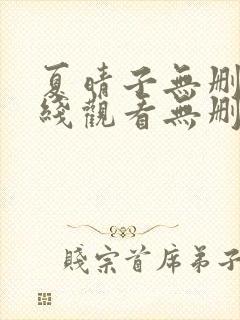 夏晴子無刪
綫觀看無刪
賤宗首席弟子